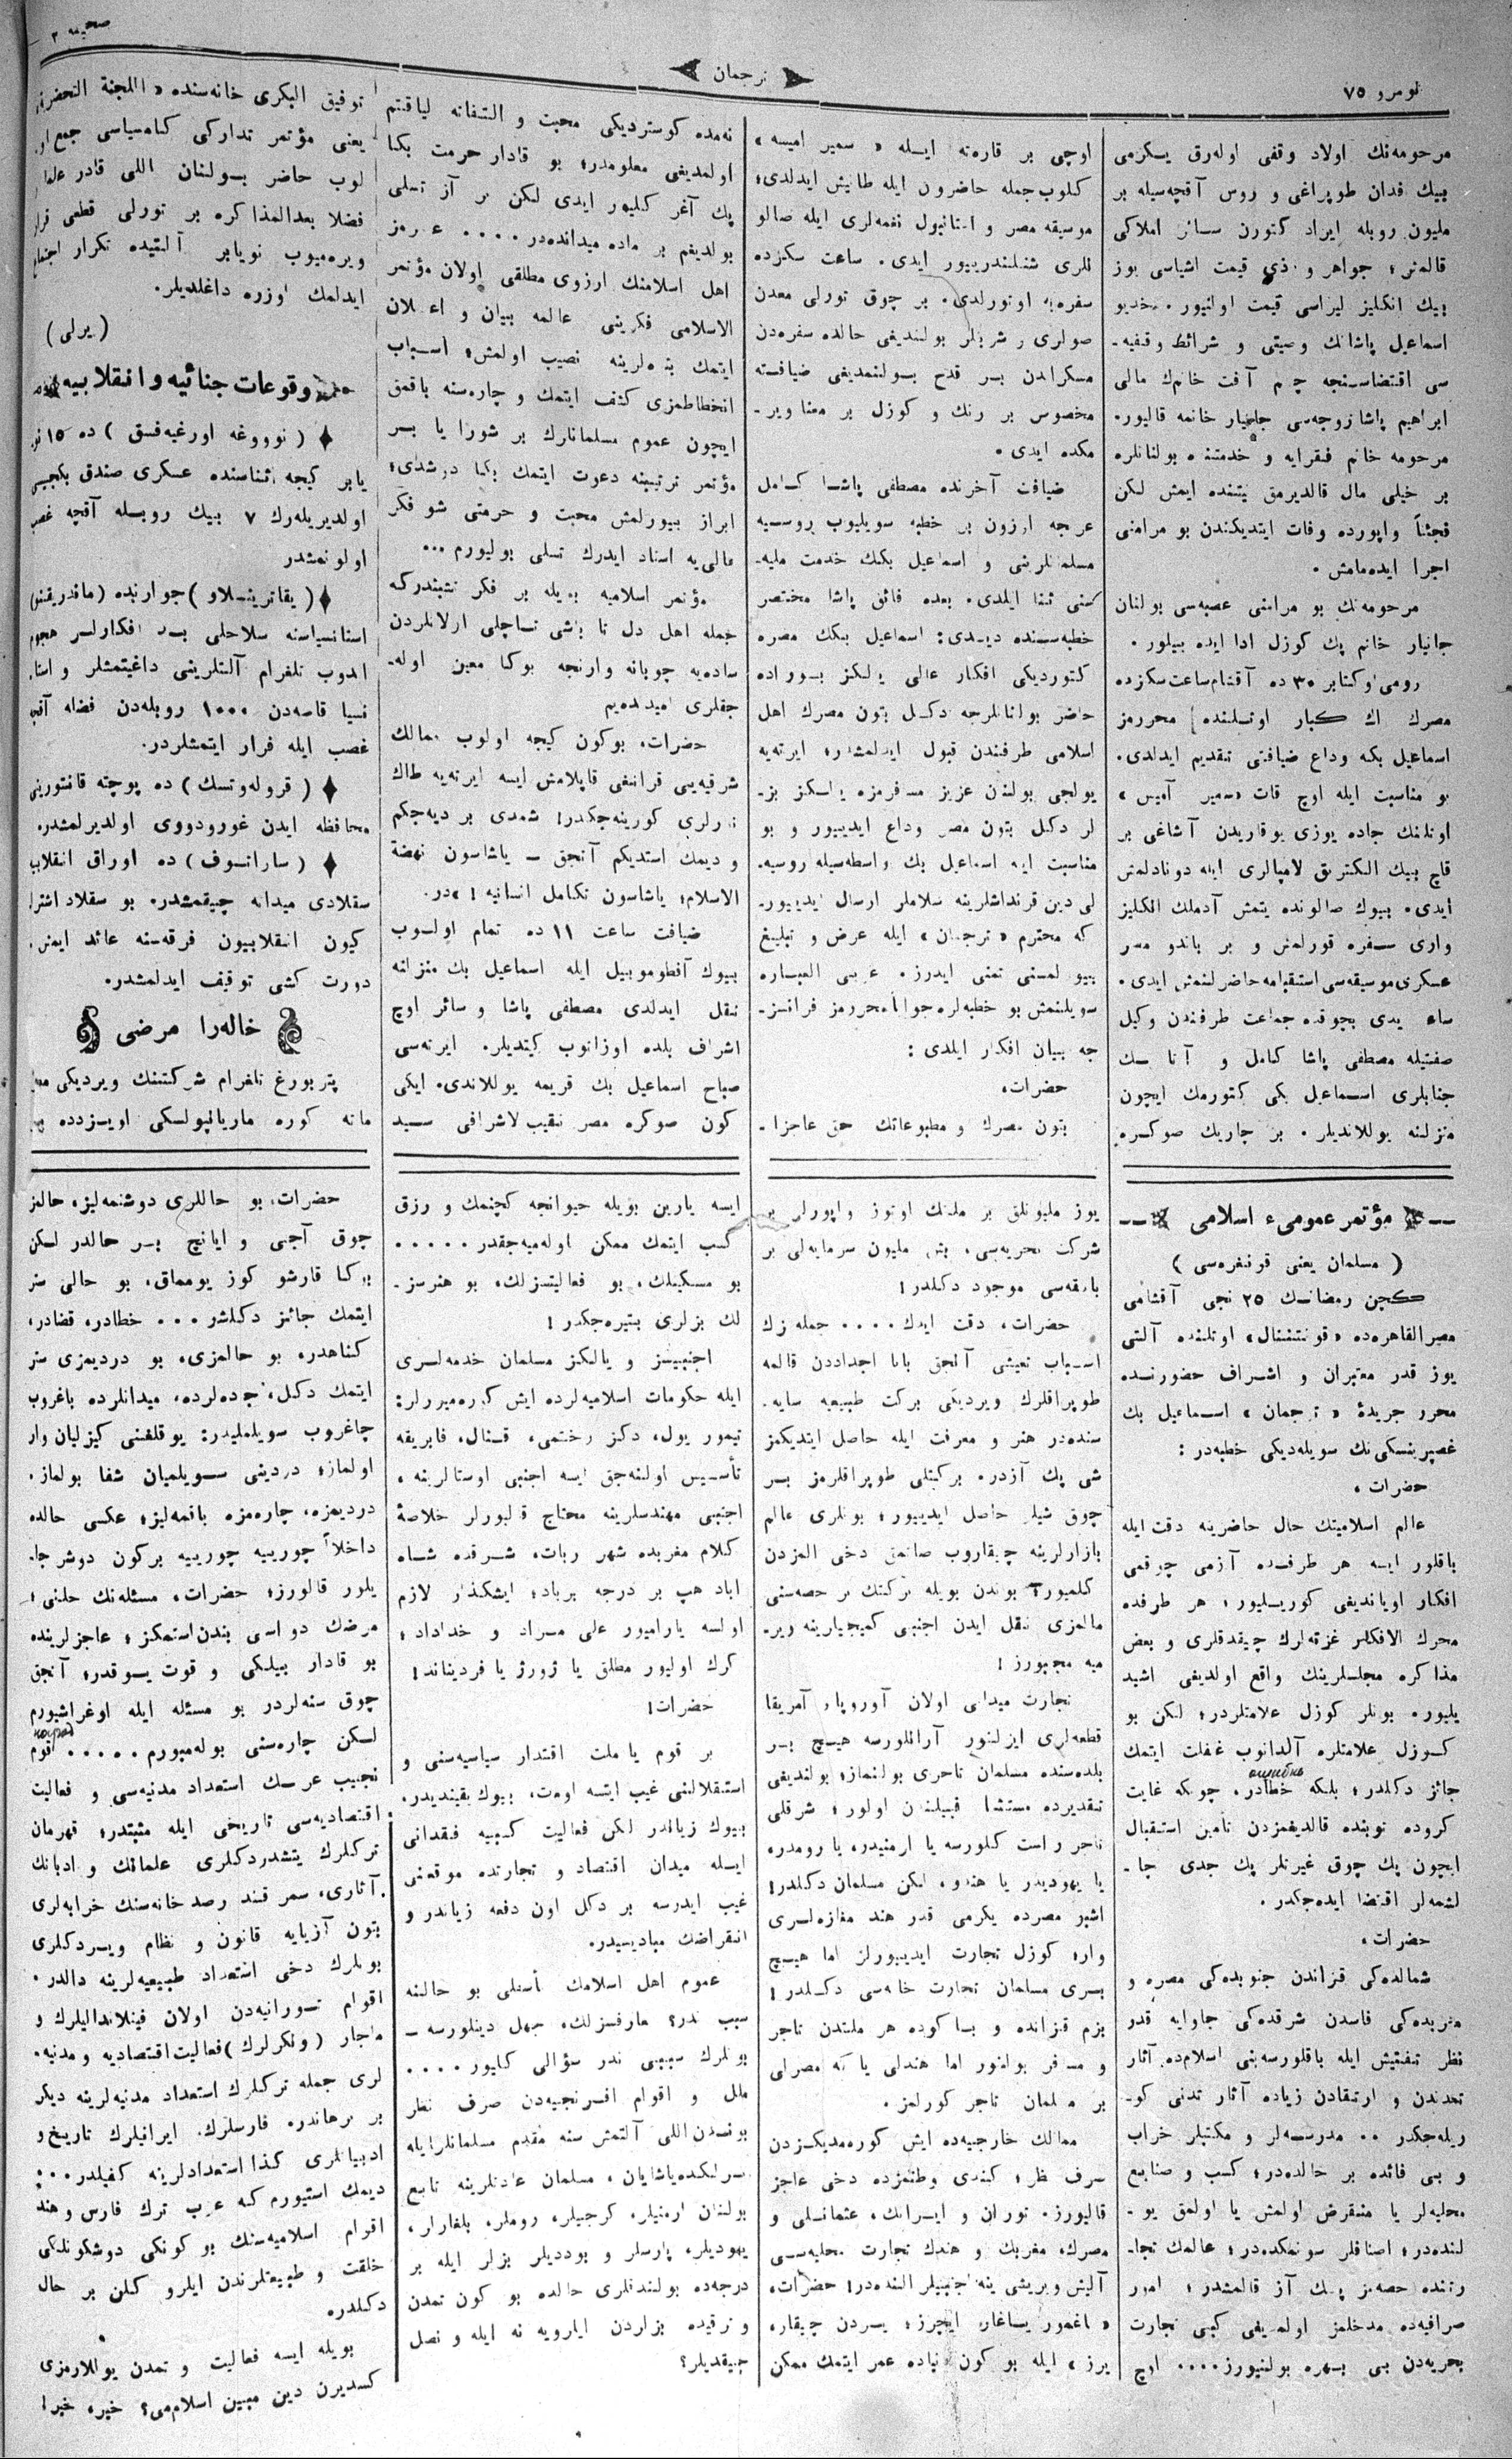 نومرو ٧٥
ترجمان
صحیفه ٢
مرحومه‌نك اولاد وقفی اوله‌رق یکرمی
بیك فدان طوپراغی و روس آقچه‌سیله بر
ملیون روبله ایراد کتورن سائر املاکی
قالمش؛ جواهر و ذی قیمت اشیاسی یوز
بیك انکلیز لیراسی قیمت اولنیور. خدیو
اسماعیل پاشانك وصیتی و شرائط وقفیه‌-
سی اقتضاسنجه چم آفت خانم‌ك مالی
ابراهیم پاشا زوجه‌سی جانیار خانمه قالیور.
مرحومه خانم فقرایه و خدمتنده بولنانلره
بر خیلی مال قالدیرمق نیتنده ایمش لکن
فجئتاً واپورده وفات ایتدیکندن بو مرامنی
اجرا ایده‌مامش.
مرحومه‌نك بو مرامنی عصبه‌سی بولنان
جانیار خانم پك کوزل ادا ایده بیلور.
رومی اوکتابر ٣٠ ده آقشام ساعت سکزده
مصرك اك کبار اوتلنده محررمز
اسماعیل بکه وداع ضیافتی تقدیم ایدلدی.
بو مناسبت ایله اوچ قات «سمیر آمیس»
اوتلنك جاده یوزی یوقاریدن آشاغی بر
قاچ بیك الکتریق لامپالری ایله دونادلمش
ایدی. بیوك صالونده یتمش آدملك انکلیز
واری سفره قورلمش و بر باندو مصر
عسکری موسیقه‌سی استقباله حاضرلنمش ایدی.
ساعت یدی بچوقده جماعت طرفندن وکیل
صفتیله مصطفی پاشا کامل و آتا بك
جنابلری اسماعیل بکی کتورمك ایچون
منزلنه یوللاندیلر. بر چاریك صوکره
اوچی بر قارەته ایله «سمیر امیسه»
کلوب جمله حاضرون ایله طانیش ایدلدی؛
موسیقه مصر و استانبول نغمه‌لری ایله صالو
نلری شنلندرییور ایدی. ساعت سکزده
سفره‌یه اوتورلدی. بر چوق تورلی معدن
صولری و شربتلر بولندیغی حالده سفره‌دن
مسکراتدن بر قدح بولنمدیغی ضیافته
مخصوص بر رنك و کوزل بر معنا ویر-
مکده ایدی.
ضیافت آخرنده مصطفی پاشا کامل
عربجه اوزون بر خطبه سویلیوب روسیه
مسلمانلرینی و اسماعیل بکك خدمت ملیه-
سنی ثنا ایلدی. بعده فائق پاشا مختصر
خطبه‌سنده دیدی: اسماعیل بکك مصره
کتوردیکی افکار عالی یالکز بوراده
حاضر بولنانلرجه دکل بتون مصرك اهل
اسلامی طرفندن قبول ایدلمشدر؛ ایرته‌یه
یولجی بولنان عزیز مسافرمزه یالکز بز-
لر دکل بتون مصر وداع ایدییور و بو
مناسبت ایله اسماعیل بك واسطه‌سیله روسیه-
لی دین قرنداشلرینه سلاملر ارسال ایدییور-
که محترم «ترجمان» ایله عرض و تبلیغ
بیورلمسنی تمنی ایدرز. عربی العباره
سویلنمش بو خطبه‌لره جواباً محررمز فرانسز-
جه بیان افکار ایلدی:
حضرات،
بتون مصرك و مطبوعاتك حق عاجزا-
نه‌مده کوستردیکی محبت و التفاته لیاقتم
اولمدیغی معلومدر؛ بو قادار حرمت بکا
پك آغر کلیور ایدی لکن بر آز تسلی
بولدیغم بر ماده میدانده‌در.... عزمز
اهل اسلامنك ارزوی مطلقی اولان مؤتمر
الاسلامی فکرینی عالمه بیان و اعلان
ایتمك بنده‌لرینه نصیب اولمش؛ اسباب
انحطاطمزی کشف ایتمك و چاره‌سنه باقمق
ایچون عموم مسلمانلرك بر شورا یا بر
مؤتمر ترتیبنه دعوت ایتمك بکا درشدی؛
ابراز بیورلمش محبت و حرمتی شو فکر
عالی‌یه اسناد ایدرك تسلی بولیورم...
مؤتمر اسلامیه بویله بر فکر نتیجه‌درکه
جمله اهل دل تا باشی تاجلی ارلانلردن
ساده‌یه چوبانه وارنجه بوکا معین اوله-
جقلری امیدده‌یم
حضرات، بوکون کیجه اولوب ممالك
شرقیه‌یی قراتلغی قاپلامش ایسه ایرته‌یه طاك
نورلری کورینه‌جکدر! شمدی بر دیه‌جکم
و دیمك استدیکم آنجق – یاشاسون نهضة
الاسلام؛ یاشاسون تکامل انسانیه! «در.
ضیافت ساعت ١١ ده تمام اولوب
بیوك آفطوموبیل ایله اسماعیل بك منزلنه
نقل ایدلدی مصطفی پاشا و سائر اوچ
اشراف بلده اوزاتوب کیتدیلر. ایرته‌سی
صباح اسماعیل بك قریمه یوللاندی. ایکی
کون صوکره مصر نقیب لاشرافی سید
توفیق البکری خانه‌سنده «اللجنة التحضریه»
یعنی مؤتمر تدارکی کنامسیاسی جمع او-
لوب حاضر بولنان اللی قادر علما
فضلا بعدالمذاکره بر تورلی قطعی قرار
ویره‌میوب نویابر آلتیده تکرار اجتماع
ایدلمك اوزره داغلدیلر.
(یرلی)
وقوعات جنائیه و انقلابیه
(نووغه اورغیه‌فسق) ده ١٥ نو-
یابر کیجه اثناسنده عسکری صندق بکجیسی
اولدیریله‌رك ٧ بیك روبله آقچه غصب
اولونمشدر
(یقاترینسلاو) جوارنده (مافدریقنو)
استانسیاسنه سلاحلی بر افکارلر هجوم
ایدوب تلغرام آلتلرینی داغیتمشلر و استا-
نسیا قاصه‌دن ١٠٠٠ روبله‌دن فضله آقچه
غصب ایله فرار ایتمشلردر.
(قروله‌وتسك) ده پوچته قانتورینی
محافظه ایدن غورودووی اولدیرلمشدر.
(ساراتوف) ده اوراق انقلابیه
سقلادی میدانه چیقمشدر. بو سقلاد اشترا-
کیون انقلابیون فرقه‌سنه عائد ایمش.
دورت کشی توقیف ایدلمشدر.
خاله‌را مرضی
پتربورغ تلغرام شرکتنك ویردیکی معلو-
ماته کوره ماریانپولسکی اویزدده
مؤتمر عمومیء اسلامی
(مسلمان یعنی قونغره‌سی)
کچن رمضانك ٢٥ نجی آقشامی
مصرالقاهره‌ده «قونتننتال» اوتلنده آلتی
یوز قدر معتبران و اشراف حضورنده
محرر جریدهٔ «ترجمان» اسماعیل بك
غصپرینسکی‌نك سویله‌دیکی خطبه‌در:
حضرات،
عالم اسلامیتك حال حاضرینه دقت ایله
باقلور ایسه هر طرفده آزمی چوقمی
افکار اویاندیغی کوریلیور، هر طرفده
محرك الافکار غزته‌لرك چیقدقلری و بعض
مذاکره مجلسلرینك واقع اولدیغی اشید
یلیور. بونلر کوزل علامتلردر؛ لکن بو
کوزل علامتلره آلدانوب غفلت ایتمك
جائز دکلدر؛ بلکه خطادر. چونکه غایت
کروده نوبتده قالدیغمزدن تأمین استقبال
ایچون پك چوق غیرتلر پك جدی چا-
لشمه‌لر اقتضا ایده‌جکدر.
حضرات،
شمالده‌کی قزاندن جنوبده‌کی مصره و
مغربده‌کی فاسدن شرقده‌کی جاوایه قدر
نظر تفتیش ایله باقلورسه‌بتی اسلامده آثار
تمدندن و ارتقادن زیاده آثار تدنی کو-
ریله‌جکدر.. مدرسه‌لر و مکتبلر خراب
و بی فائده بر حالده‌در؛ کسب و صنایع
محلیه‌لر یا منقرض اولمش یا اولمق یو-
لنده‌در؛ اصنافلر سونمکده‌در؛ عالمك تجا-
رتنده حصه‌مز پك آز قالمشدر؛ امور
صرافیه‌ده مدخلمز اولمدیغی کبی تجارت
بحریه‌دن بی بهره بولنیورز.... اوچ
یوز ملیونلق بر ملتك اوتوز واپورلی بر
شرکت بحریه‌سی، بش ملیون سرمایه‌لی بر
بانقه‌سی موجود دکلدر!
حضرات، دقت ایدك.... جمله زك
اسباب تعیشی آنجق بابا اجداددن قالمه
طوپراقلرك ویردیکی برکت طبیعیه سایه-
سنده‌در هنر و معرفت ایله حاصل ایتدیکمز
شی پك آزدر. برکتلی طوپراقلرمز بر
چوق شیلر حاصل ایدییور؛ بونلری عالم
بازارلرینه چیقاروب صاتمق دخی المزدن
کلمیور؟ بوندن بویله برکتك بر حصه‌سنی
مالمزی نقل ایدن اجنبی کمیجیلرینه ویر-
میه مجبورز!
تجارت میدانی اولان آوروپا، آمریقا
قطعه‌لری ایزلنور آرانلورسه هیچ بر
بلده‌سنده مسلمان تاجری بولنماز؛ بولندیغی
تقدیرده مستثنا قبیلندن اولور؛ شرقلی
تاجر راست کلورسه یا ارمنیدر، یا رومدر،
یا یهودیدر یا هندو، لکن مسلمان دکلدر!
اشبو مصرده یکرمی قدر هند مغازه‌لری
وار؛ کوزل تجارت ایدییورلر اما هیچ
بری مسلمان تجارت خانه‌سی دکلدر!
بزم قزانده و باکوده هر ملتدن تاجر
و مسافر بولنور اما هندلی یا که مصرلی
بر مسلمان تاجر کورلمز.
ممالك خارجیه‌ده ایش کوره‌مدیکزدن
صرف نظر؛ کندی وطنمزده دخی عاجز
قالیورز. توران و ایرانك، عثمانلی و
مصرك، مغربك و هندك تجارت محلیه‌سی
آلیش ویریشی ینه اجنبیلر النده‌در! حضرات،
«یاغمور یاغار، ایچرز؛ یردن چیقار،
یرز» ایله بو کون زیاده عمر ایتمك ممکن
ایسه یارین بویله حیوانجه کچنمك و رزق
کسب ایتمك ممکن اوله‌میه‌جقدر.....
بو مسکینلك، بو فعالیتسزلك، بو هنرسز-
لك بزلری بتیره‌جکدر!
اجنبیسز و یالکز مسلمان خدمه‌لری
ایله حکومات اسلامیه‌لرده ایش کوره‌میورلر:
تیمور یول، دکز رختمی، قنال، فابریقه
تأسیس اولنه‌جق ایسه اجنبی اوستالرینه،
اجنبی مهندسلرینه محتاج قالیورلر خلاصهٔ
کلام مغربده شهر ربات، شرقده شاه
اباد هپ بر درجه برباد؛ ایشکذار لازم
اولسه یارامیور علی مراد و خداداد؛
کرك اولیور مطلق یا ژورژ یا فردیناند!
حضرات!
بر قوم یا ملت اقتدار سیاسیه‌سنی و
استقلالنی غیب ایتسه اومت، بیوك بقیندیدر.
بیوك زیاندر لکن فعالیت کسبیه فقدانی
ایله میدان اقتصاد و تجارتده موقعنی
غیب ایدرسه بر دکل اون دفعه زیاندر و
انقراضك مبادیسیدر.
عموم اهل اسلامك تأسفلی بو حالنه
سبب ندر؟ معارفسزلك، جهل دینلورسه –
بونلرك سببی ندر سؤالی کلیور....
ملل و اقوام افرنجیه‌دن صرف نظر
بوندن اللی آلتمش سنه مقدم مسلمانلر ایله
برلکده یاشایان، مسلمان عادتلرینه تابع
بولنان ارمنیلر، کرجیلر، روملر، بلغارلر،
یهودیلر، پارسلر و بوددیلر بزلر ایله بر
درجه‌ده بولندقلری حالده بو کون تمدن
و ترقیده بزلردن ایلرویه نه ایله و نصل
چیقدیلر؟
حضرات، بو حاللری دوشنمه‌لیز، حالمز
چوق آجی و ایانچ بر حالدر لکن
بوکا قارشو کوز یومماق، بو حالی ستر
ایتمك جائز دکلشر... خطادر، قضادر،
کناهدر. بو حالمزی، بو دردیمزی ستر
ایتمك دکل، جاده‌لرده، میدانلرده باغروب
چاغروب سویلملیدر: یوقلغنی کیزلیان وار
اولماز؛ دردینی سویلمیان شفا بولماز.
دردیمزه، چاره‌مزه باقمه‌لیز؛ عکسی حالده
داخلاً چوریه چوریه برکون دوشرجا-
یلور قالورز؛ حضرات، مسئله‌نك حلنی؛
مرضك دواسی بندن استمکز؛ عاجزلرینده
بو قادار بیلکی و قوت یوقدر؛ آنجق
چوق سنه‌لردر بو مسئله ایله اوغراشیورم
لکن چاره‌سنی بوله‌میورم..... اقوام
نجیب عربك استعداد مدنیه‌سی و فعالیت
اقتصادیه‌سی تاریخی ایله مثبتدر؛ قهرمان
ترکلرك یتشدردکلری علمانك و ادبانك
آثاری، سمرقند رصدخانه‌سنك خرابه‌لری
بتون آزیایه قانون و نظام ویردکلری
بونلرك دخی استعداد طبیعیه‌لرینه دالدر.
اقوام تورانیه‌دن اولان فینلاندالیلرك و
ماجار (ونکرلرك) فعالیت اقتصادیه و مدنیه-
لری جمله ترکلرك استعداد مدنیه‌لرینه دیکر
بر برهاندر. فارسلرك، ایرانیلرك تاریخ و
ادبیاتلری کذا استعدادلرینه کفیلدر...
دیمك استیورم که عرب ترك فارس و هند
اقوام اسلامیه‌سنك بو کونکی دوشکونلکی
خلقت و طبیعتلرندن ایلرو کلن بر حال
دکلدر.
بویله ایسه فعالیت و تمدن یوللارمزی
کسدیرن دین مبین اسلام‌می؟ خیر، خیر!
ошибка